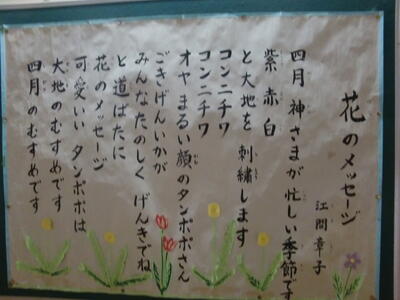 花のメッセージ
江間章子
四月 神さまが忙しい季節です
紫 赤 白
と大地を 刺繍します
コンニチワ
コンニチワ
オヤ まるい顔のタンポポさん
ごきげんいかが
みんなたのしく げんきでね
と道ばたに
花のメッセージ
可愛いい タンポポは
大地のむすめです
四月のむすめです